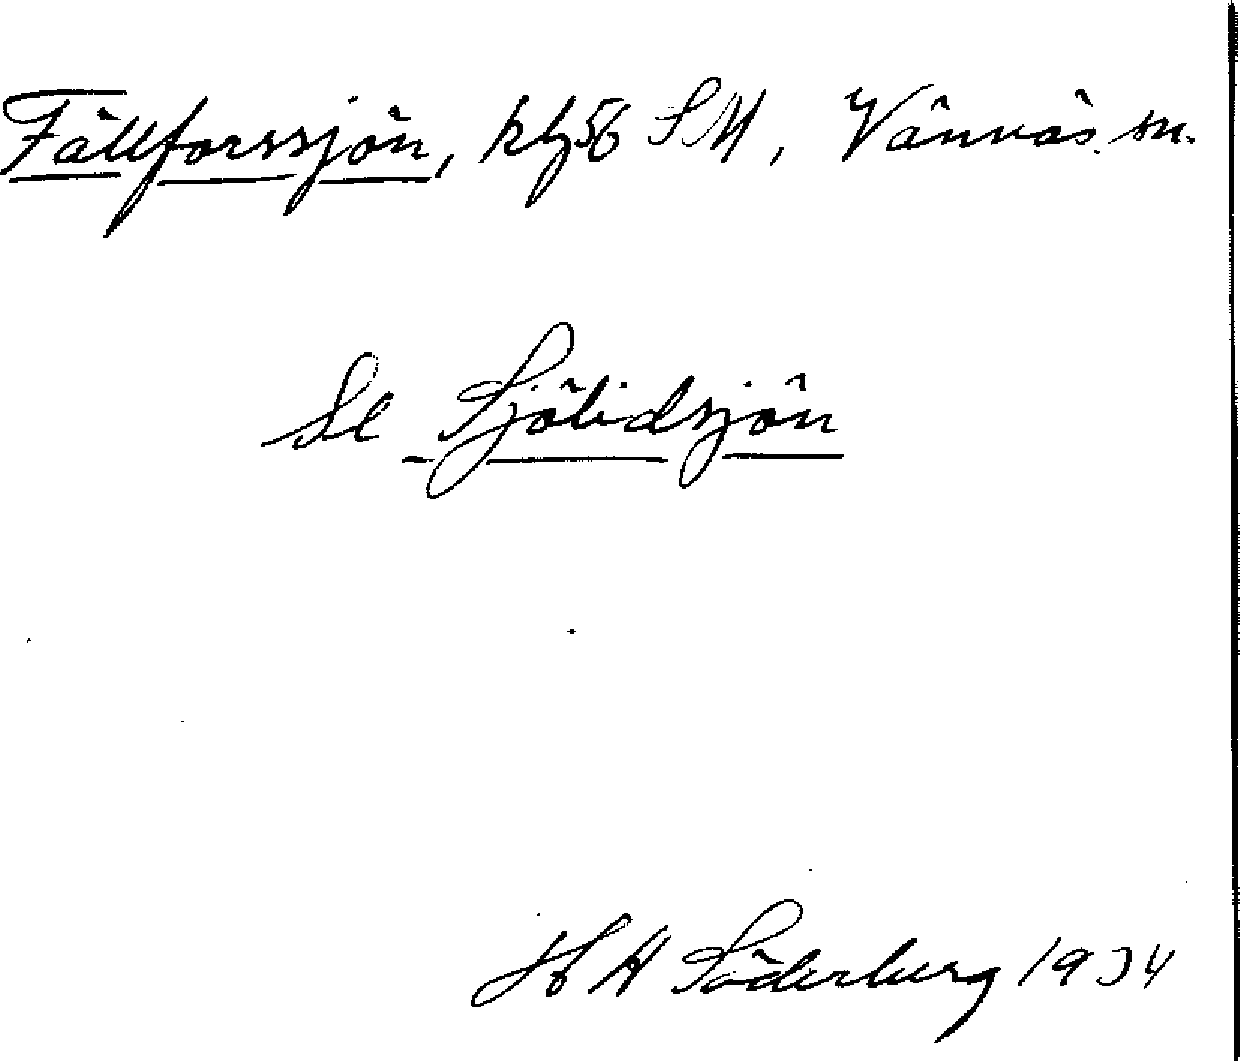 Fällforssjön, kbl 56 SV, Vännäs sn.
Se Sjölidsjön
H H Söderberg 1934